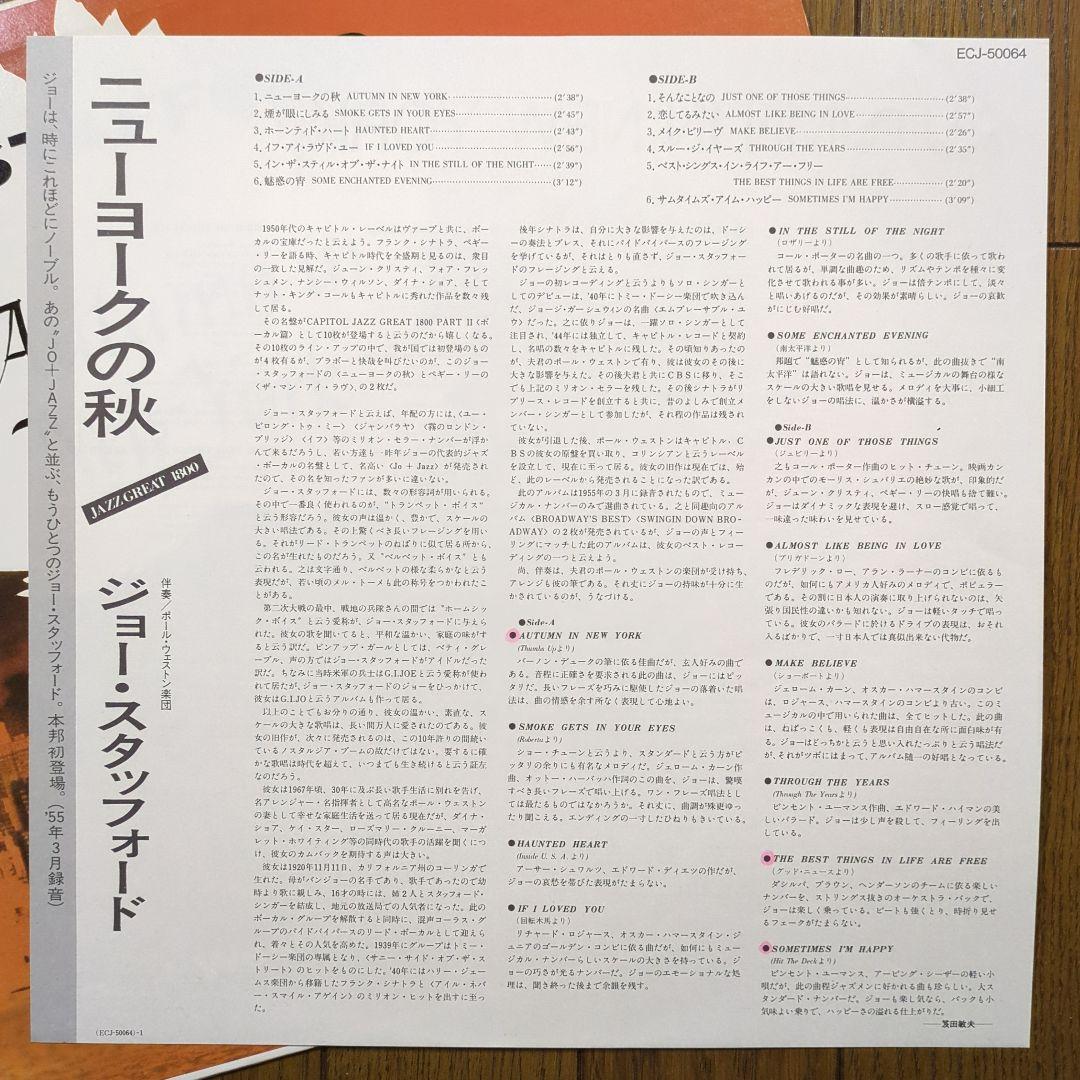 ECJ-50064
ジョーは、時にこれほどにノーブル。あの“JO＋JAZZ”と並ぶ、もうひとつのジョー・スタッフォード。本邦初登場。（'55年3月録音）
ニューヨークの秋
JAZZ GREAT 1800
伴奏／ポール・ウェストン楽団
ジョー・スタッフォード
●SIDE-A
1. ニューヨークの秋 AUTUMN IN NEW YORK (2'38")
2. 煙が眼にしみる SMOKE GETS IN YOUR EYES (2'45")
3. ホーンティド・ハート HAUNTED HEART (2'43")
4. イフ・アイ・ラヴド・ユー IF I LOVED YOU (2'56")
5. イン・ザ・スティル・オブ・ザ・ナイト IN THE STILL OF THE NIGHT (2'39")
6. 魅惑の宵 SOME ENCHANTED EVENING (3'12")
●SIDE-B
1. そんなことなの JUST ONE OF THOSE THINGS (2'38")
2. 恋してるみたい ALMOST LIKE BEING IN LOVE (2'57")
3. メイク・ビリーヴ MAKE BELIEVE (2'26")
4. スルー・ジ・イヤーズ THROUGH THE YEARS (2'35")
5. ベスト・シングス・イン・ライフ・アー・フリー
THE BEST THINGS IN LIFE ARE FREE (2'20")
6. サムタイムズ・アイム・ハッピー SOMETIMES I'M HAPPY (3'09")
1950年代のキャピトル・レーベルはヴァーブと共に、ボー
カルの宝庫だったと云えよう。フランク・シナトラ、ペギー・
リーを語る時、キャピトル時代を全盛期と見るのは、衆目
の一致した見解だ。ジューン・クリスティ、フォア・フレッ
シュメン、ナンシー・ウィルソン、ダイナ・ショア、そして
ナット・キング・コールもキャピトルに秀れた作品を数々残
して居る。
その名盤がCAPITOL JAZZ GREAT 1800 PART II〈ボ
ーカル篇〉として10枚が登場すると云うのだから嬉しくなる。
その10枚のライン・アップの中で、我が国では初登場のもの
が4枚有るが、ブラボーと快哉を叫びたいのが、このジョー
・スタフォードの〈ニューヨークの秋〉とペギー・リーの
〈ザ・マン・アイ・ラヴ〉、の2枚だ。
ジョー・スタッフォードと云えば、年配の方には、〈ユー・
ビロング・トゥ・ミー〉〈ジャンバラヤ〉〈霧のロンドン・
ブリッジ〉〈イフ〉等のミリオン・セラー・ナンバーが浮か
んで来るだろうし、若い方達も一昨年ジョーの代表的ジャズ
・ボーカルの名盤として、名高い〈Jo + Jazz〉が発売され
たので、その名を知ったファンが多いに違いない。
ジョー・スタッフォードには、数々の形容詞が用いられる。
その中で一番良く使われるのが、“トランペット・ボイス”
と云う形容だろう。彼女の声は温かく、豊かで、スケールの
大きい唱法である。その上驚くべき長いフレージングを用い
る。それがリード・トランペットのねばりに似て居る所から、
この名が生れたものだろう。又“ベルベット・ボイス”とも
云われる。之は文字通り、ベルベットの様な柔らかなと云う
表現だが、若い頃のメル・トーメも此の称号をつかわれたこ
とがある。
第二次大戦の最中、戦地の兵隊さんの間では“ホームシッ
ク・ボイス”と云う愛称が、ジョー・スタフォードに与えら
れた。彼女の歌を聞いてると、平和な温かい、家庭の味がす
ると云う訳だ。ピンアップ・ガールとしては、ベティ・グレ
ーブル、声の方ではジョー・スタフォードがアイドルだった
訳だ。ちなみに当時米軍の兵士はG.I.JOEと云う愛称が使わ
れて居たが、ジョー・スタフォードのジョーをひっかけて、
彼女はG.I.Joと云うアルバムも作って居る。
以上のことでもお分りの通り、彼女の温かい、素直な、ス
ケールの大きな歌唱は、長い間万人に愛されたのである。彼
女の旧作が、次々に発売されるのは、この10年許りの間続い
ているノスタルジア・ブームの故だけではない。要するに確
かな歌唱は時代を超えて、いつまでも生き続けると云う証左
なのだろう。
彼女は1967年頃、30年に及ぶ長い歌手生活に別れを告げ、
名アレンジャー・名指揮者として高名なポール・ウェストン
の妻として幸せな家庭生活を送って居る現在だが、ダイナ・
ショア、ケイ・スター、ローズマリー・クルーニー、マーガ
レット・ホワイティング等の同時代の歌手の活躍を聞くにつ
け、彼女のカムバックを期待する声は大きい。
彼女は1920年11月11日、カリフォルニア州のコーリンガで
生れた。母がバンジョーの名手であり、歌手であったので幼
時より歌に親しみ、16才の時には、姉2人とスタッフォード・
シンガーを結成し、地元の放送局での人気者になった。此の
ボーカル・グループを解散すると同時に、混声コーラス・グル
ープのパイドパイパースのリード・ボーカルとして迎えら
れ、着々とその人気を高めた。1939年にグループはトミー・
ドーシー楽団の専属となり、〈サニー・サイド・オブ・ザ・ス
トリート〉のヒットをものにした。'40年にはハリー・ジェー
ムス楽団から移籍したフランク・シナトラと〈アイル・ネバ
ー・スマイル・アゲイン〉のミリオン・ヒットを出すに至っ
た。
後年シナトラは、自分に大きな影響を与えたのは、ドーシ
ーの奏法とブレス、それにパイドパイパースのフレージング
を挙げているが、それはとりも直さず、ジョー・スタフォード
のフレージングと云える。
ジョーの初レコーディングと云うよりもソロ・シンガーと
してのデビューは、'40年にトミー・ドーシー楽団で吹き込ん
だ、ジョージ・ガーシュウィンの名曲〈エムブレーサブル・ユ
ウ〉だった。之に依りジョーは、一躍ソロ・シンガーとして
注目され、'44年には独立して、キャピトル・レコードと契約
し、名唱の数々をキャピトルに残した。その頃知りあったの
が、夫君のポール・ウェストンで有り、彼は彼女のその後に
大きな影響を与えた。その後夫君と共にCBSに移り、そこ
でも上記のミリオン・セラーを残した。その後シナトラがリ
プリース・レコードを創立すると共に、昔のよしみで創立メ
ンバー・シンガーとして参加したが、それ程の作品は残され
ていない。
彼女が引退した後、ポール・ウェストンはキャピトル、C
BSの彼女の原盤を買い取り、コリンシアンと云うレーベル
を設立して、現在に至って居る。彼女の旧作は現在では、殆
ど、此のレーベルから発売されることになった訳である。
此のアルバムは1955年の3月に録音されたもので、ミュー
ジカル・ナンバーのみで選曲されている。之と同趣向のアル
バム〈BROADWAY'S BEST〉〈SWINGIN DOWN BRO-
ADWAY〉の2枚が発売されているが、ジョーの声とフィー
リングにマッチした此のアルバムは、彼女のベスト・レコー
ディングの一つと云えよう。
尚、伴奏は、夫君のポール・ウェストンの楽団が受け持ち、
アレンジも彼の筆である。それ丈にジョーの持味が十分に生
かされているのが、うなづける。
●Side-A
●AUTUMN IN NEW YORK
(Thumbs Upより)
バーノン・デュークの筆に依る佳曲だが、玄人好みの曲で
ある。音程に正確さを要求される此の曲は、ジョーにはピッ
タリだ。長いフレーズを巧みに駆使したジョーの落着いた唱
法は、曲の情感を余す所なく表現して心地よい。
●SMOKE GETS IN YOUR EYES
(Robertaより)
ジョー・チューンと云うより、スタンダードと云う方がピ
ッタリの余りにも有名なメロディだ。ジェローム・カーン作
曲、オットー・ハーバッハ作詞のこの曲を、ジョーは、驚嘆
すべき長いフレーズで唱い上げる。ワン・フレーズ唱法とし
ては最たるものではなかろうか。それ丈に、曲調が殊更ゆっ
たり聞こえる。エンディングの一寸したひねりもきいている。
●HAUNTED HEART
(Inside U. S. A.より)
アーサー・シュワルツ、エドワード・ディエツの作だが、
ジョーの哀愁を帯びた表現がたまらない。
●IF I LOVED YOU
(回転木馬より)
リチャード・ロジャース、オスカー・ハマースタイン・ジ
ュニアのゴールデン・コンビに依る曲だが、如何にもミュー
ジカル・ナンバーらしいスケールの大きさを持っている。ジ
ョーの巧さが光るナンバーだ。ジョーのエモーショナルな処
理は、聞き終った後まで余韻を残す。
●IN THE STILL OF THE NIGHT
(ロザリーより)
コール・ポーターの名曲の一つ。多くの歌手に依って歌わ
れて居るが、単調な曲趣のため、リズムやテンポを種々に変
化させて歌われる事が多い。ジョーは倍テンポにして、淡々
と唱いあげるのだが、その効果が素晴らしい。ジョーの哀歓
がにじむ好唱だ。
●SOME ENCHANTED EVENING
(南太平洋より)
邦題で“魅惑の宵”として知られるが、此の曲抜きで“南
太平洋”は語れない。ジョーは、ミュージカルの舞台の様な
スケールの大きい歌唱を見せる。メロディを大事に、小細工
をしないジョーの唱法に、温かさが横溢する。
●Side-B
●JUST ONE OF THOSE THINGS
(ジュビリーより)
之もコール・ポーター作曲のヒット・チューン。映画カン
カンの中でのモーリス・シュバリエの絶妙な歌が、印象的だ
が、ジューン・クリスティ、ペギー・リーの快唱も捨て難い。
ジョーはダイナミックな表現を避け、スロー感覚で唱って、
一味違った味わいを見せている。
●ALMOST LIKE BEING IN LOVE
(ブリガドーンより)
フレデリック・ロー、アラン・ラーナーのコンビに依るも
のだが、如何にもアメリカ人好みのメロディで、ポピュラー
である。その割に日本人の演奏に取り上げられないのは、矢
張り国民性の違いかも知れない。ジョーは軽いタッチで唱っ
ている。彼女のバラードに於けるドライブの表現は、おそれ
入るばかりで、一寸日本人では真似出来ない代物だ。
●MAKE BELIEVE
(ショーボートより)
ジェローム・カーン、オスカー・ハマースタインのコンビ
は、ロジャース、ハマースタインのコンビより古い。このミ
ュージカルの中で用いられた曲は、全てヒットした。此の曲
は、ねばっこくも、軽くも表現は自由自在な所に面白味が有
る。ジョーはどっちかと云うと思い入れたっぷりと云う唱法だ
が、それがツボにはまって、アルバム随一の好唱となっている。
●THROUGH THE YEARS
(Through The Yearsより)
ビンセント・ユーマンス作曲、エドワード・ハイマンの美
しいバラード。ジョーは少し声を殺して、フィーリングを出
している。
●THE BEST THINGS IN LIFE ARE FREE
(グッド・ニュースより)
ダシルバ、ブラウン、ヘンダーソンのチームに依る楽しい
ナンバーを、ストリングス抜きのオーケストラ・バックで、
ジョーは楽しく乗っている。ビートも強くとり、時折り見せ
るフェークがたまらない。
●SOMETIMES I'M HAPPY
(Hit The Deckより)
ビンセント・ユーマンス、アービング・シーザーの軽い小
唄だが、此の曲程ジャズメンに好かれる曲も珍らしい。大ス
タンダード・ナンバーだ。ジョーも楽し気なら、バックも小
気味よい乗りで、ハッピーさの溢れる仕上がりだ。
——笈田敏夫——
(ECJ-50064)-1